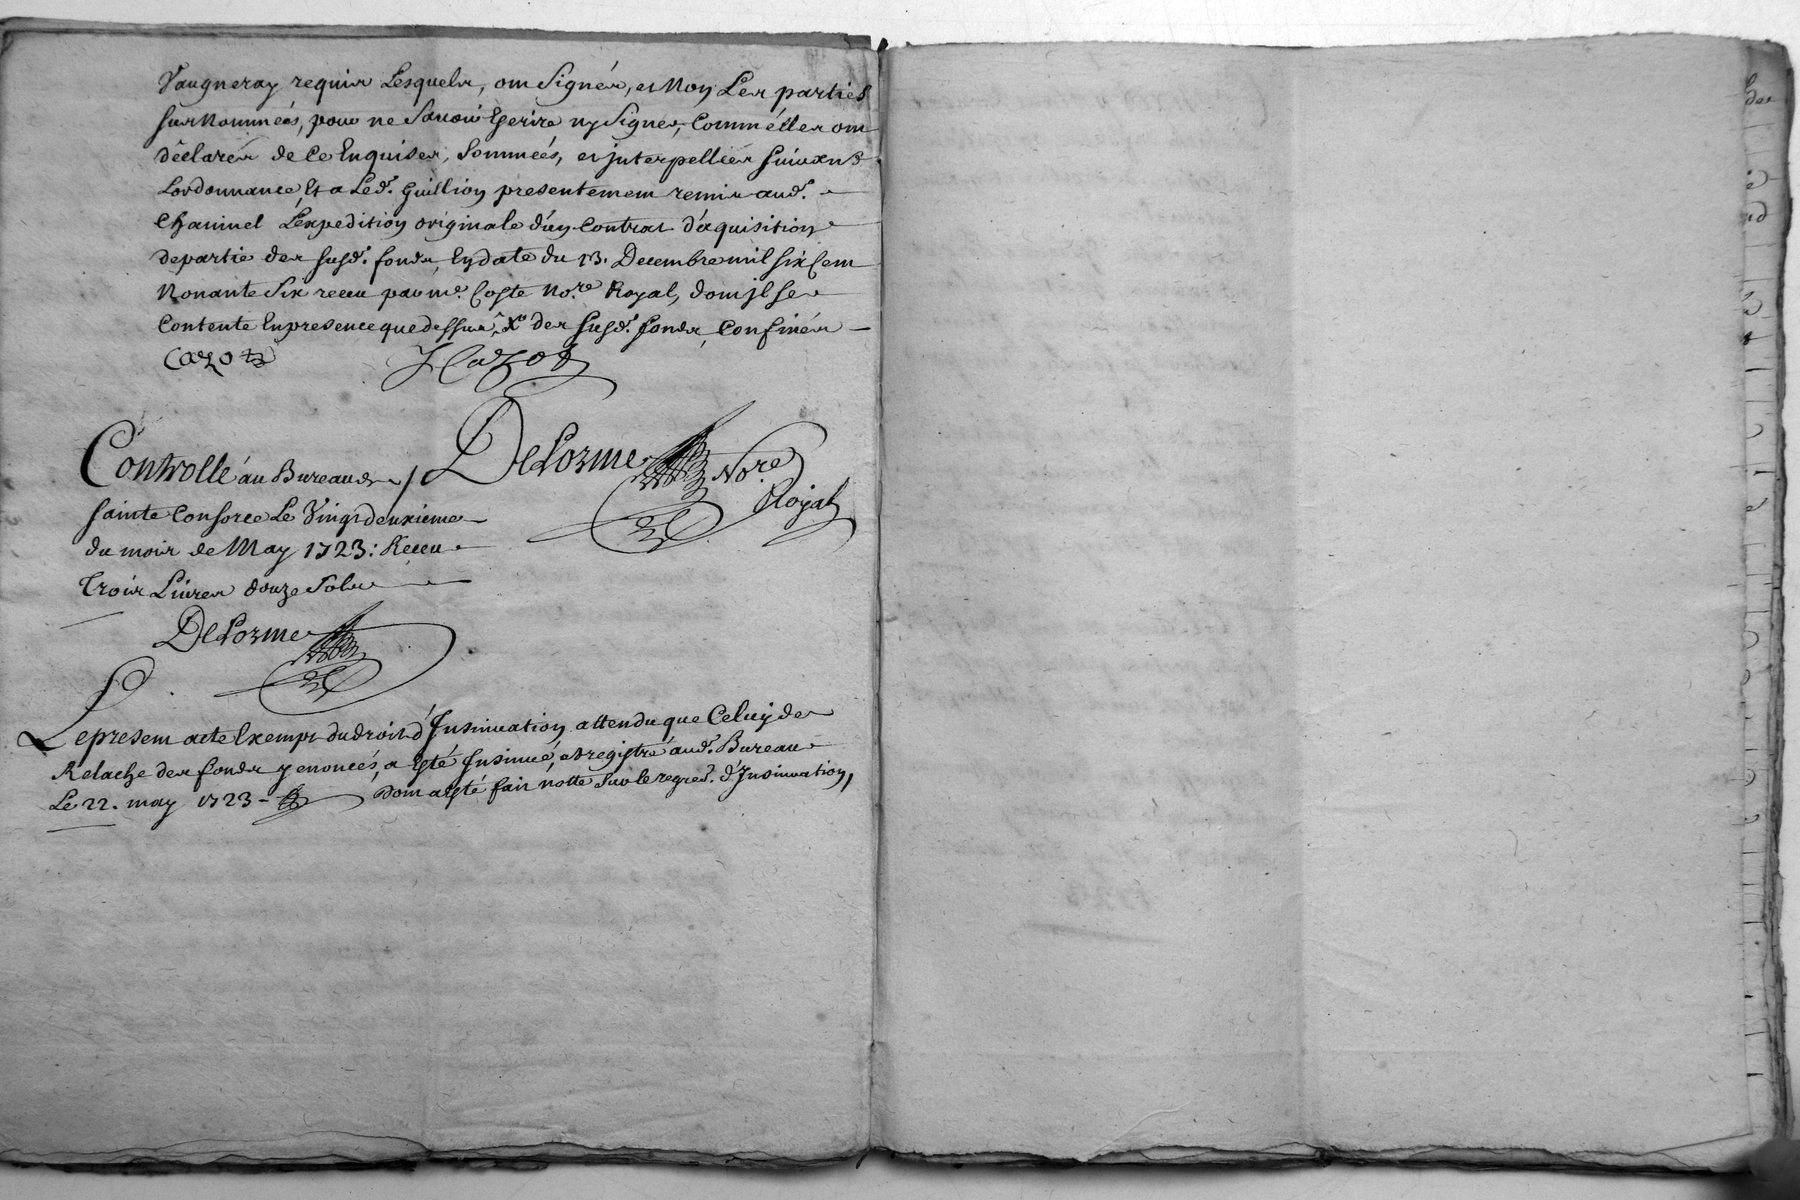 Vaugneray requis Lesquels, ont Signés, et Non Les parties
susNommées, pour ne Sauoir Escrire ny Signer, Comm'elles ont
déclarés de Ce Enquises, Sommées, et interpellées suiuant
Lordonnance, Et a Led.t Guillion presentement remis aud.t
Chauinel L'expedition originale d'un Contrat d'aquisition
de partie des susd.t fonds, En date du 13. Decembre mil six Cent
Nonante Six receu par me. Coste No.re Royal, dont il se
Contente En presence que dessus, des susd.t fonds, Confinés
Cazot J Cazot
Delorme No.re Royal
Controllé au Bureau de
sainte Consorce Le Vingt deuxieme
du mois de May 1723: Receu
Trois Liures douze Sols
Delorme
Le present acte Exempt du droit d'Insinuation attendu que Celuy de
Relache des fonds y enoncés, a Esté Insinué, et registré aud.t Bureau
Le 22. may 1723 - dont a esté fait notte sur le regre.t d'Insinuation,